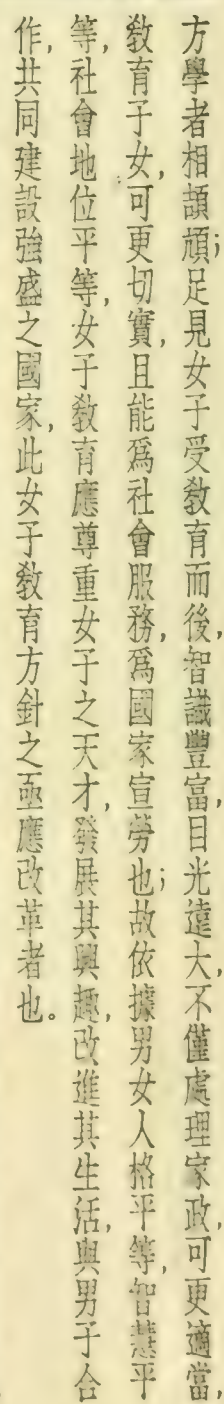 方學者相頡頏;足見女子受敎育而後,智識豐富,目光遠大,不僅處理家政,可更適當,
敎育子女,可更切實,且能爲社會服務,爲國家宣勞也;故依據男女人格平等,智慧平
等,社會地位平等,女子敎育應尊重女子之天才,發展其興趣,改進其生活,與男子合
作,共同建設強盛之國家,此女子敎育方針之亟應改革者也。